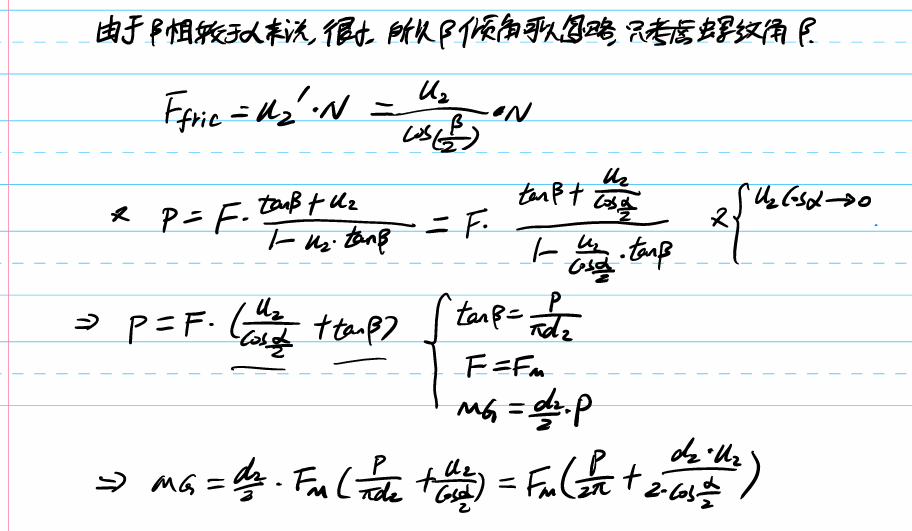 由于β相较于α来说,很小,所以β倾角可以忽略,只考虑螺纹角β.
F_fric = u₂'·N = u₂/cos(β/2)·N
又 P = F·(tanβ + u₂)/(1 - u₂·tanβ) = F·(tanβ + u₂/cos(α/2))/(1 - u₂/cos(α/2)·tanβ) 又{u₂cosα→0
⇒ P = F·(u₂/cos(α/2) + tanβ) {tanβ = P/(πd₂)
F = F_M
M_G = d₂/2·P
⇒ M_G = d₂/2·F_M(P/(πd₂) + u₂/cos(α/2)) = F_M(P/(2π) + d₂·u₂/(2·cos(α/2)))